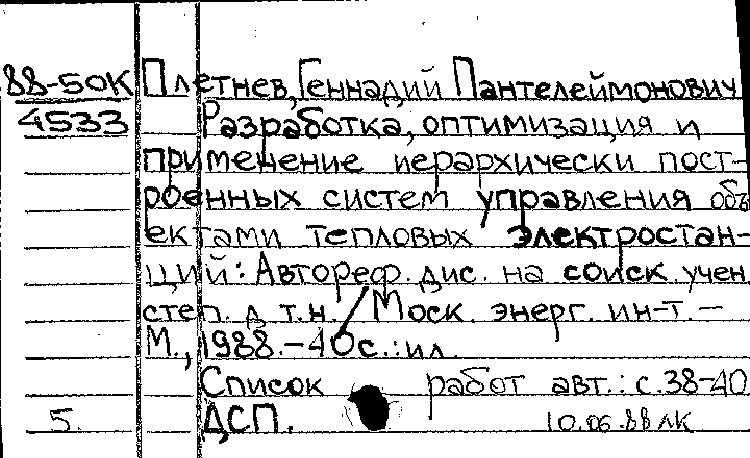 88-50К Плетнев, Геннадий Пантелеймонович
4533 Разработка, оптимизация и
применение иерархически пост-
роенных систем управления объ
ектами тепловых электростан-
ций: Автореф. дис. на соиск. учен.
степ. д. т.н. / Моск. энерг. ин-т. —
М., 1988. - 40с.: ил.
Список работ авт.: с. 38-40
5. ДСП. 10.06.88 ЛК